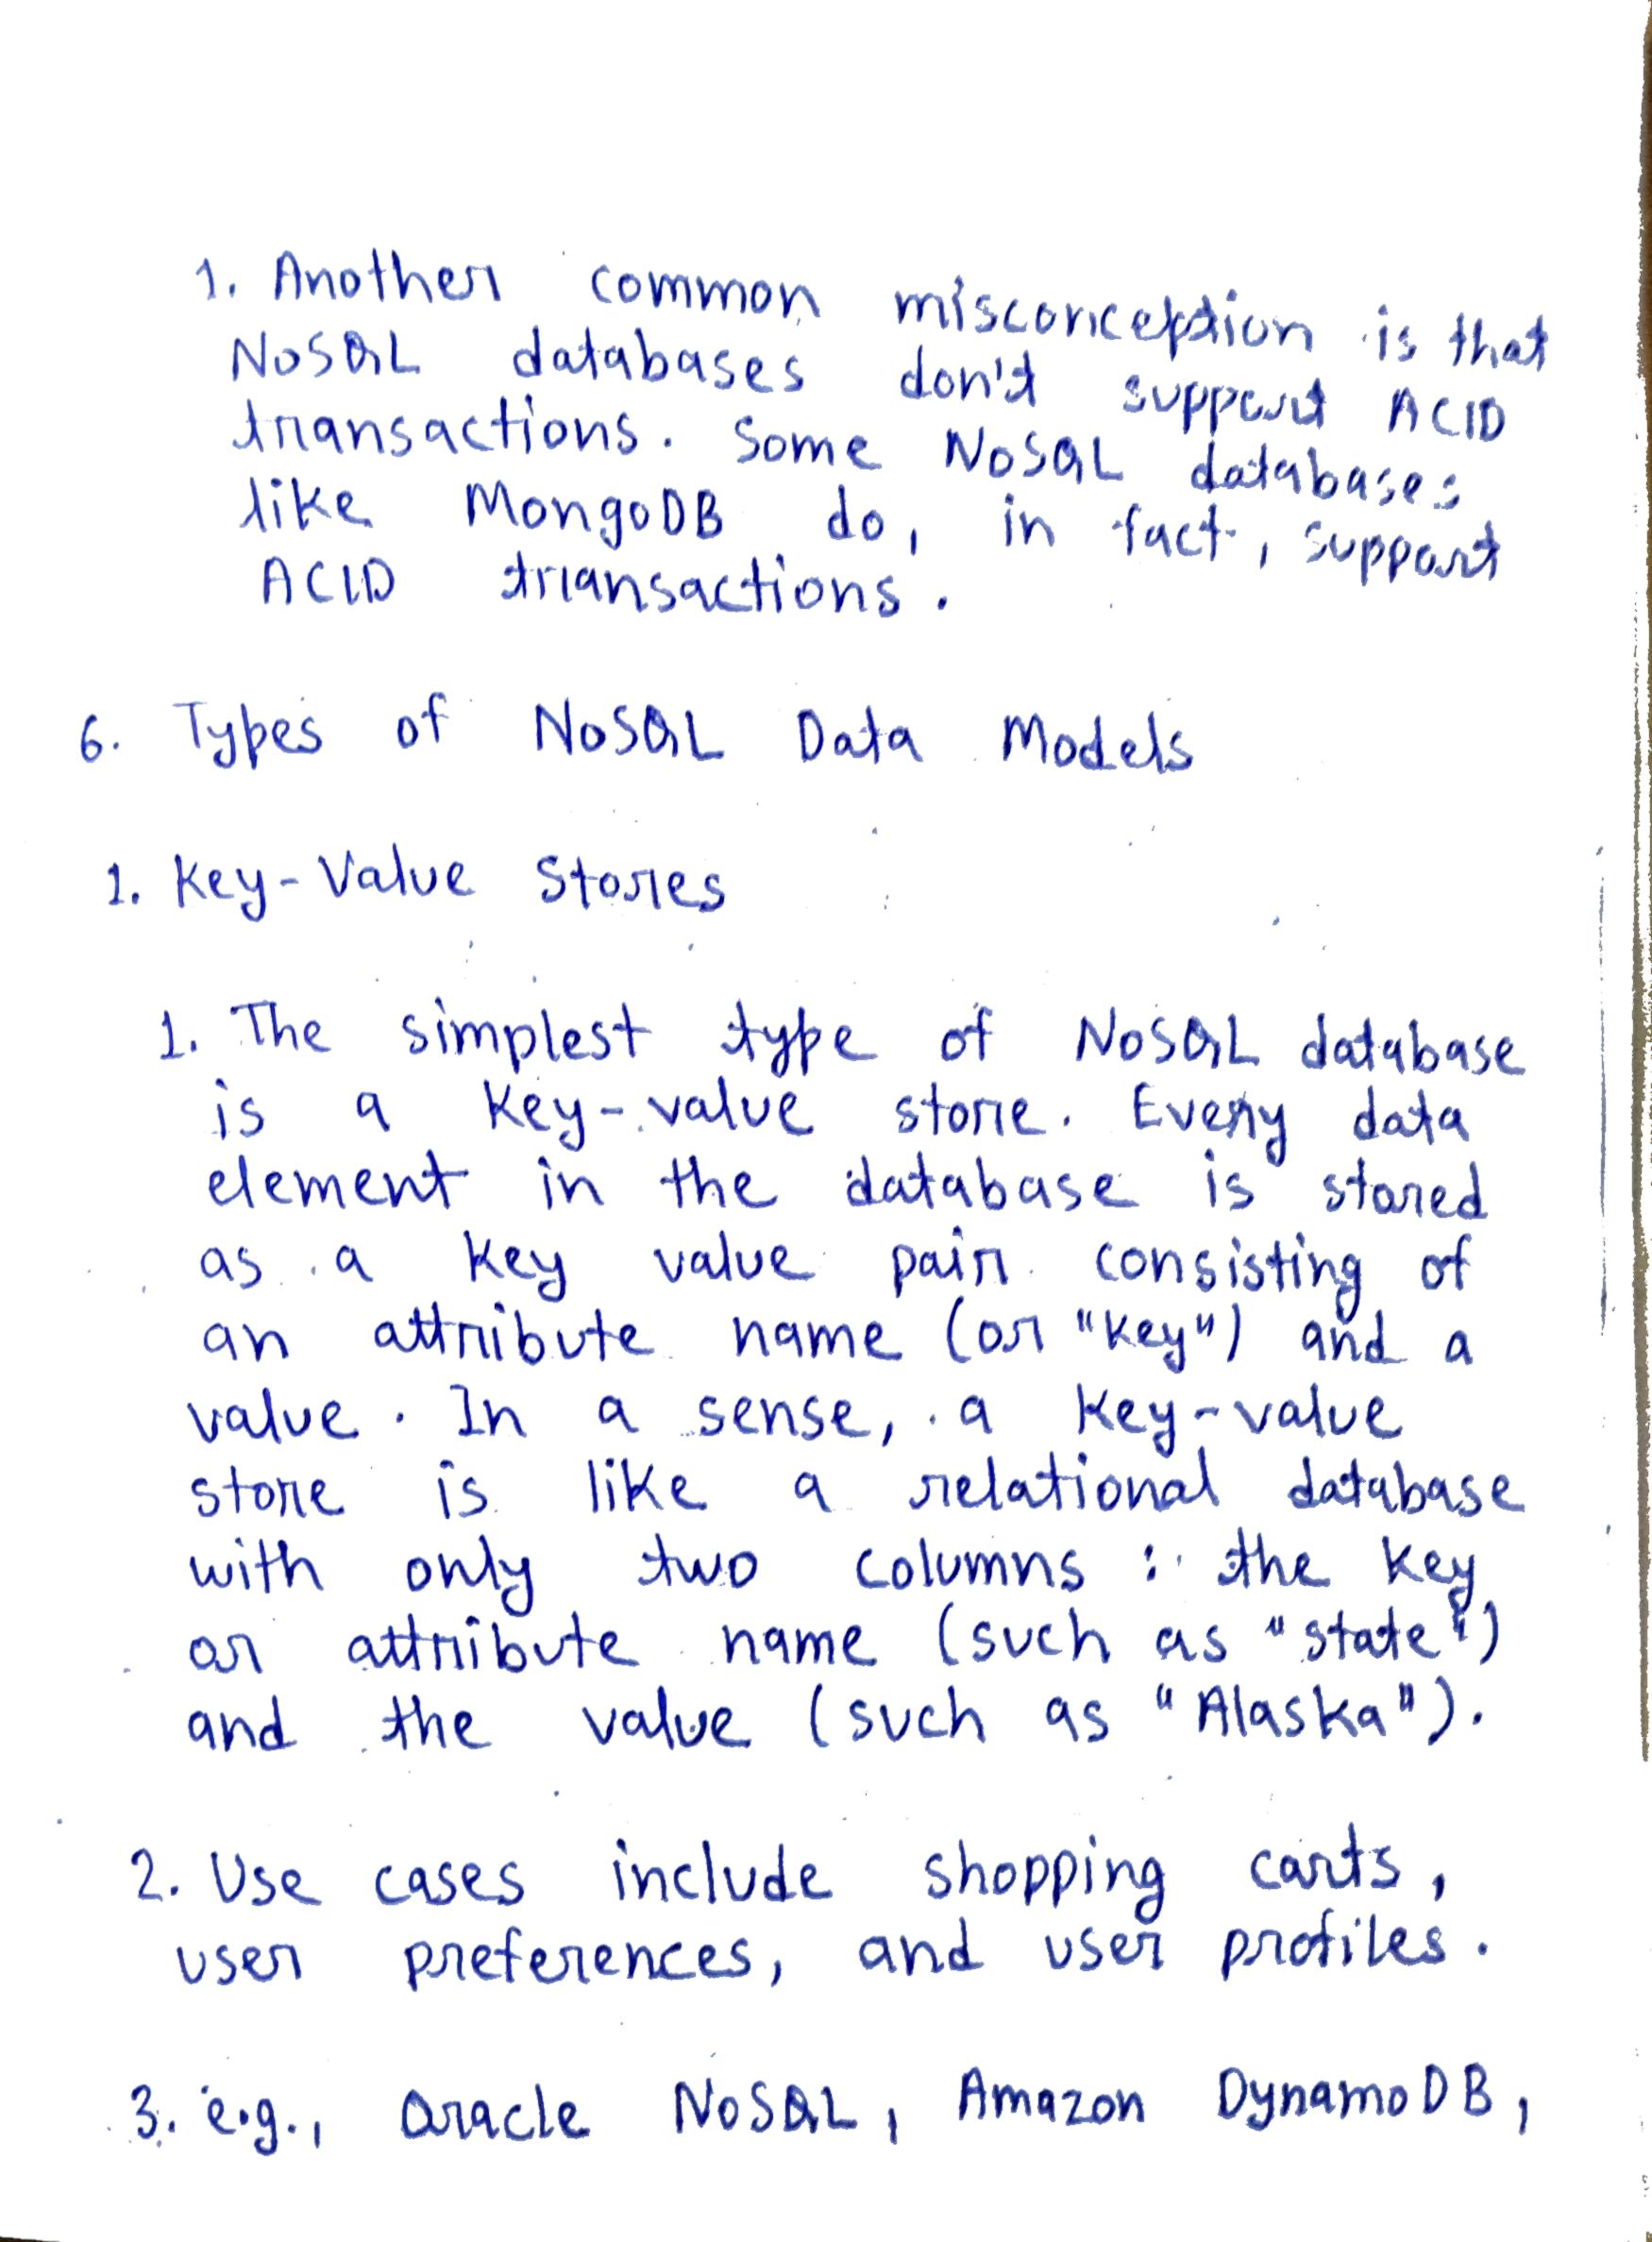 1. Another common misconception is that
NoSQL databases don't support ACID
transactions. Some NoSQL databases
like MongoDB do, in fact, support
ACID transactions.
6. Types of NoSQL Data Models
1. Key-Value Stores
1. The simplest type of NoSQL database
is a key-value store. Every data
element in the database is stored
as a key value pair consisting of
an attribute name (or "key") and a
value. In a sense, a key-value
store is like a relational database
with only two columns: the key
or attribute name (such as "state")
and the value (such as "Alaska").
2. Use cases include shopping carts,
user preferences, and user profiles.
3. e.g., Oracle NoSQL, Amazon DynamoDB,